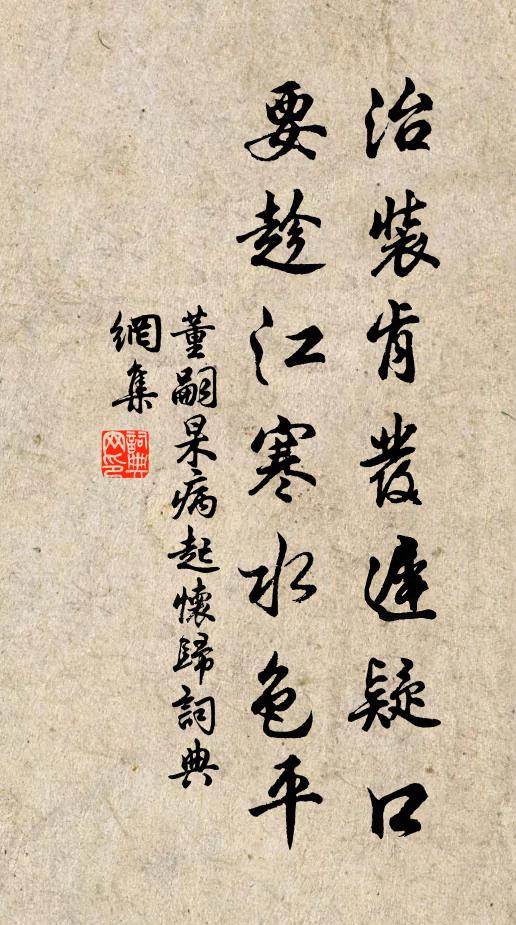 治裝肯發遲疑口
要趁江寒水色平
董嗣杲病起懷歸詞典
網集
詞典網印